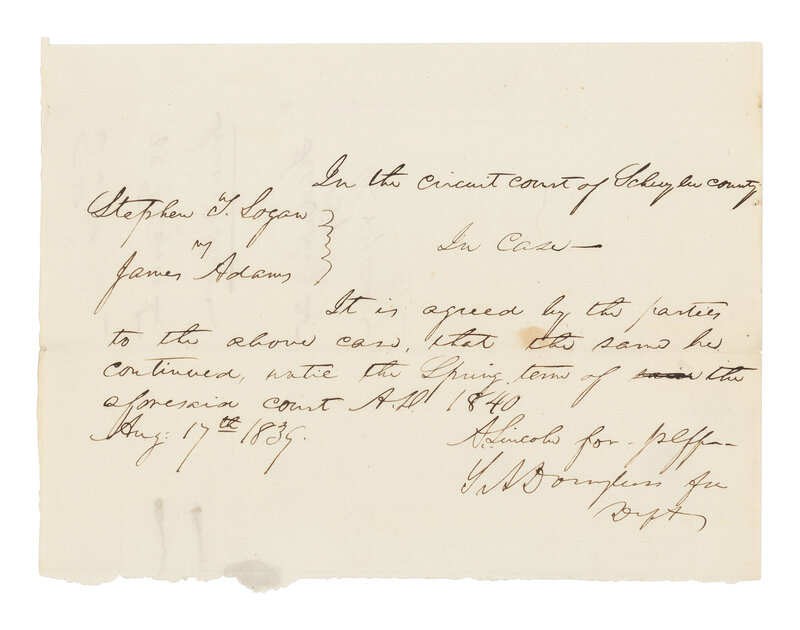 In the circuit court of Schuyler county
Stephen T. Logan
vs
James Adams
In Case—
It is agreed by the parties
to the above case, that the same be
continued, until the Spring term of the
aforesaid court A.D. 1840
Aug: 17th 1839.
A. Lincoln for plff—
S A Douglass for
Deft